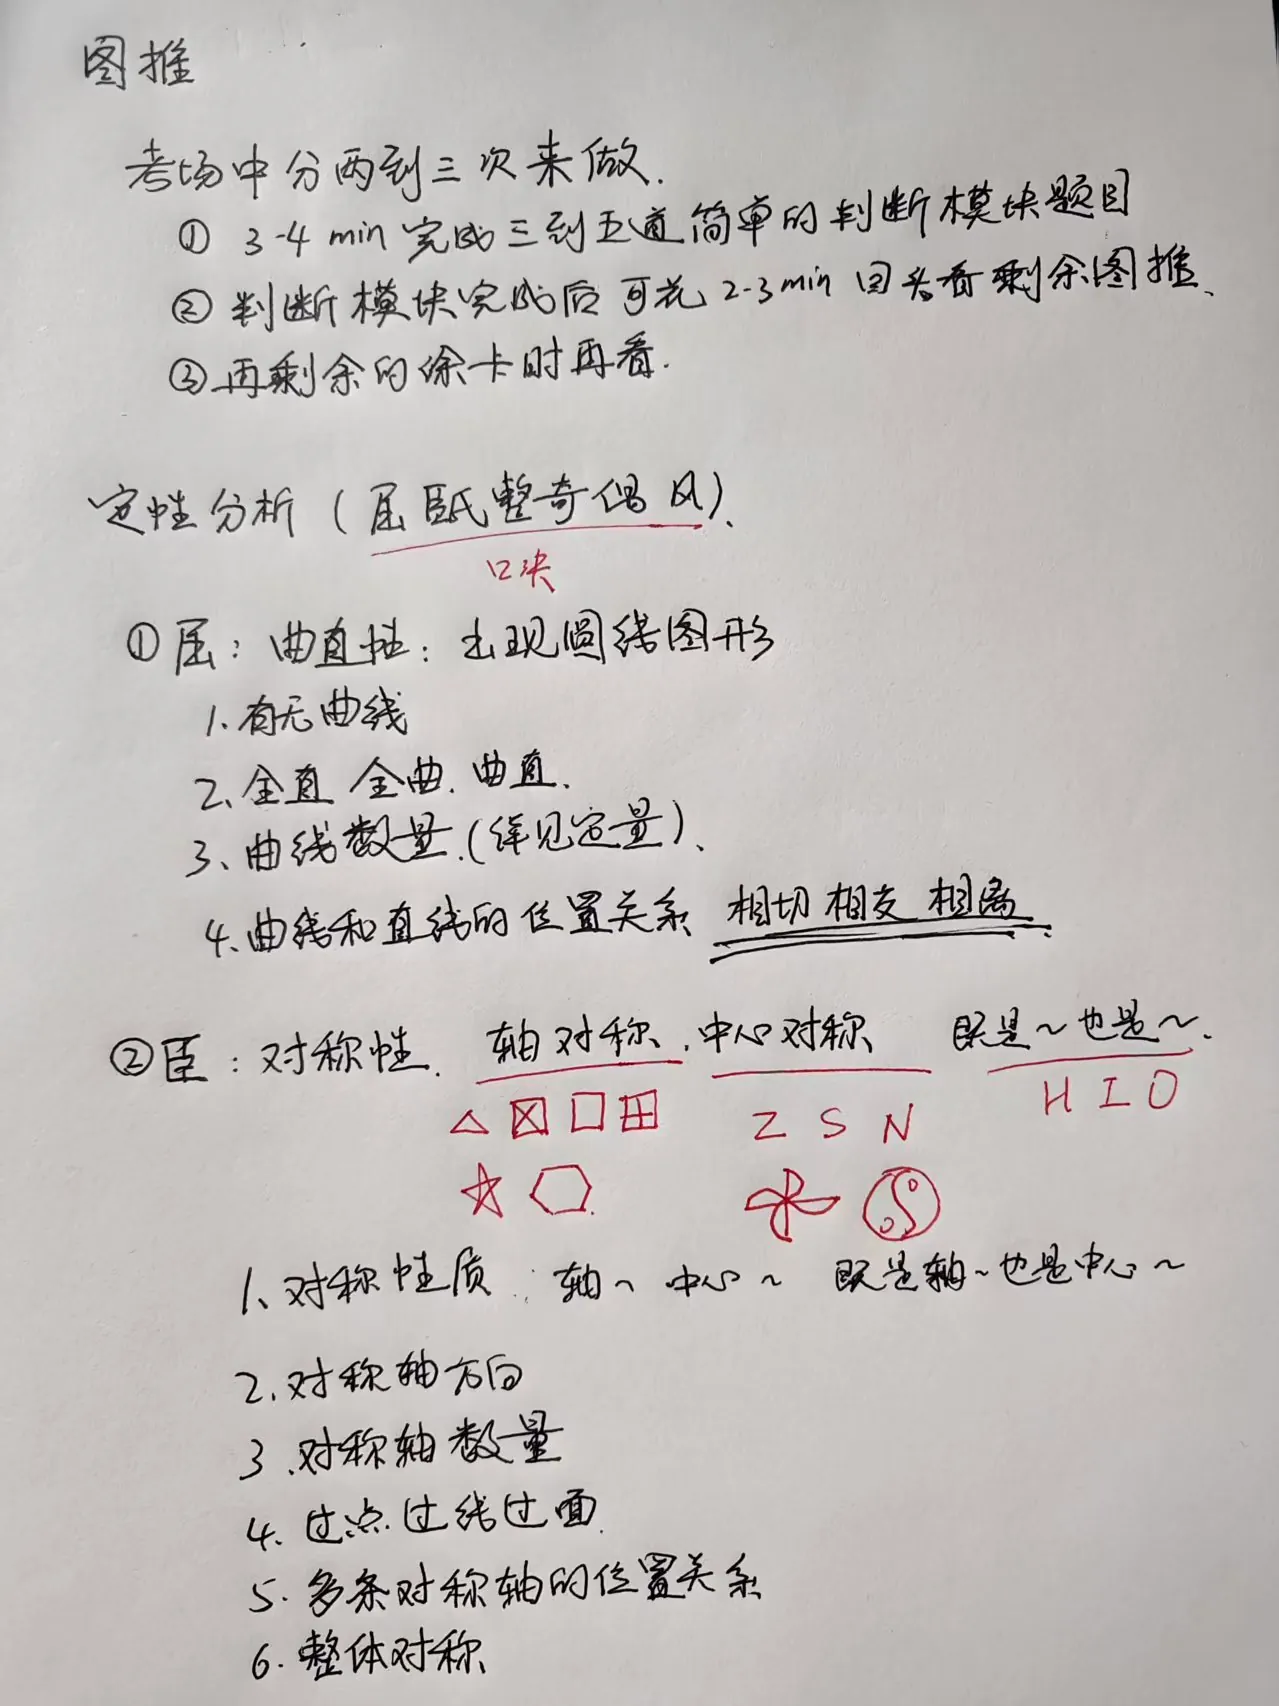 图推
考场中分两到三次来做.
① 3-4 min 完成三到五道简单的判断模块题目
② 判断模块完成后可花 2-3min 回头看剩余图推、
③ 再剩余的涂卡时再看.
定性分析 (屈臣氏整奇偶风)、
口决
① 屈: 曲直性: 出现圆线图形
1. 有无曲线
2、全直 全曲. 曲直.
3、曲线数量.(详见定量)、
4、曲线和直线的位置关系 相切 相交 相离
② 臣: 对称性. 轴对称. 中心对称 既是~也是~.
Z S N H I O
1、对称性质: 轴~ 中心~ 既是轴~也是中心~
2、对称轴方向
3、对称轴数量
4、过点过线过面.
5. 多条对称轴的位置关系
6. 整体对称